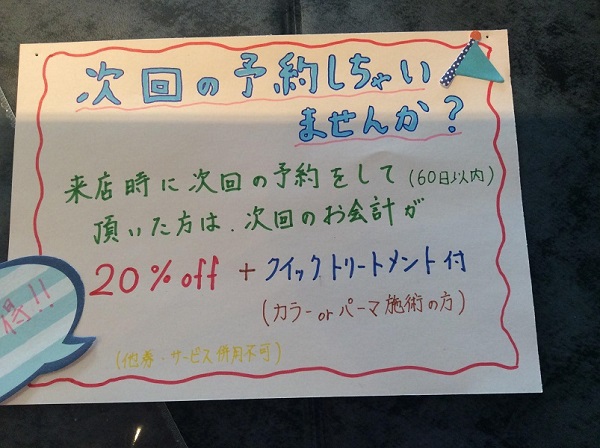 次回の予約しちゃい
ませんか?
来店時に次回の予約をして(60日以内)
頂いた方は、次回のお会計が
20%off + クイックトリートメント付
(カラーorパーマ施術の方)
得!!
(他券・サービス併用不可)